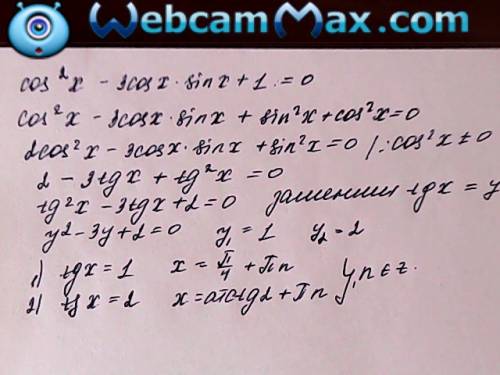 WebcamMax.com
cos²x - 3cosx·sinx + 1 = 0
cos²x - 3cosx·sinx + sin²x + cos²x = 0
2cos²x - 3cosx·sinx + sin²x = 0 /:cos²x ≠ 0
2 - 3tgx + tg²x = 0
tg²x - 3tgx + 2 = 0 заменим tgx = y
y2 - 3y + 2 = 0 y₁ = 1 y₂ = 2
1) tgx = 1 x = π/4 + πn
2) tgx = 2 x = arctg2 + πn } n ∈ z.